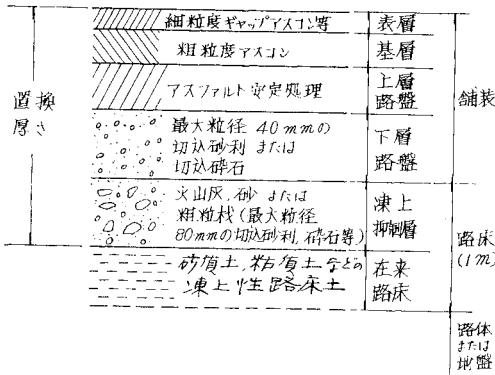 細粒度ギャップアスコン等
表層
粗粒度アスコン
基層
アスファルト安定処理
上層
路盤
最大粒径 40mmの
切込砂利 または
切込砕石
下層
路盤
火山灰、砂 または
粗粒材(最大粒径
80mmの切込砂利、砕石等)
凍上
抑制層
砂質土、粘質土などの
凍上性路床土
在来
路床
置換
厚さ
舗装
路床
(1m)
路体
または
地盤